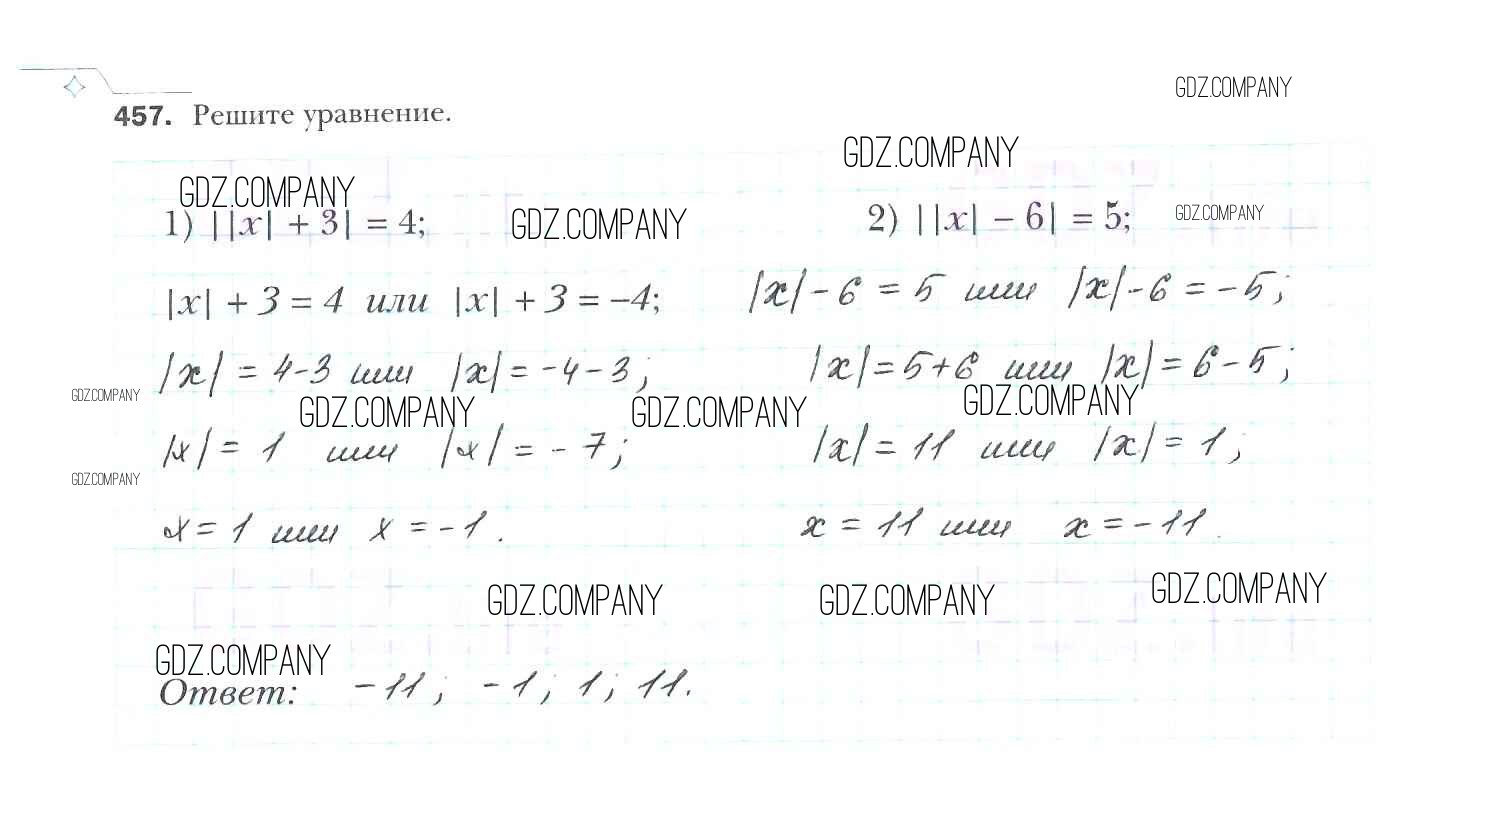 GDZ.COMPANY
457. Решите уравнение.
GDZ.COMPANY
GDZ.COMPANY
1) ||x| + 3| = 4;
GDZ.COMPANY
2) ||x| − 6| = 5;
GDZ.COMPANY
|x| + 3 = 4 или |x| + 3 = −4;
|x| − 6 = 5 или |x| − 6 = −5;
|x| = 4−3 или |x| = −4−3;
|x| = 5+6 или |x| = 6−5;
GDZ.COMPANY
GDZ.COMPANY
GDZ.COMPANY
GDZ.COMPANY
|x| = 1 или |x| = −7;
|x| = 11 или |x| = 1;
GDZ.COMPANY
x = 1 или x = −1.
x = 11 или x = −11.
GDZ.COMPANY
GDZ.COMPANY
GDZ.COMPANY
GDZ.COMPANY
Ответ: −11; −1; 1; 11.